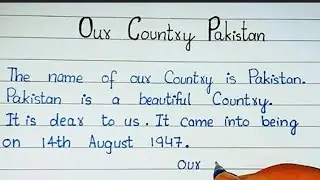 Our Country Pakistan
The name of our Country is Pakistan.
Pakistan is a beautiful Country.
It is dear to us. It came into being
on 14th August 1947.
Our